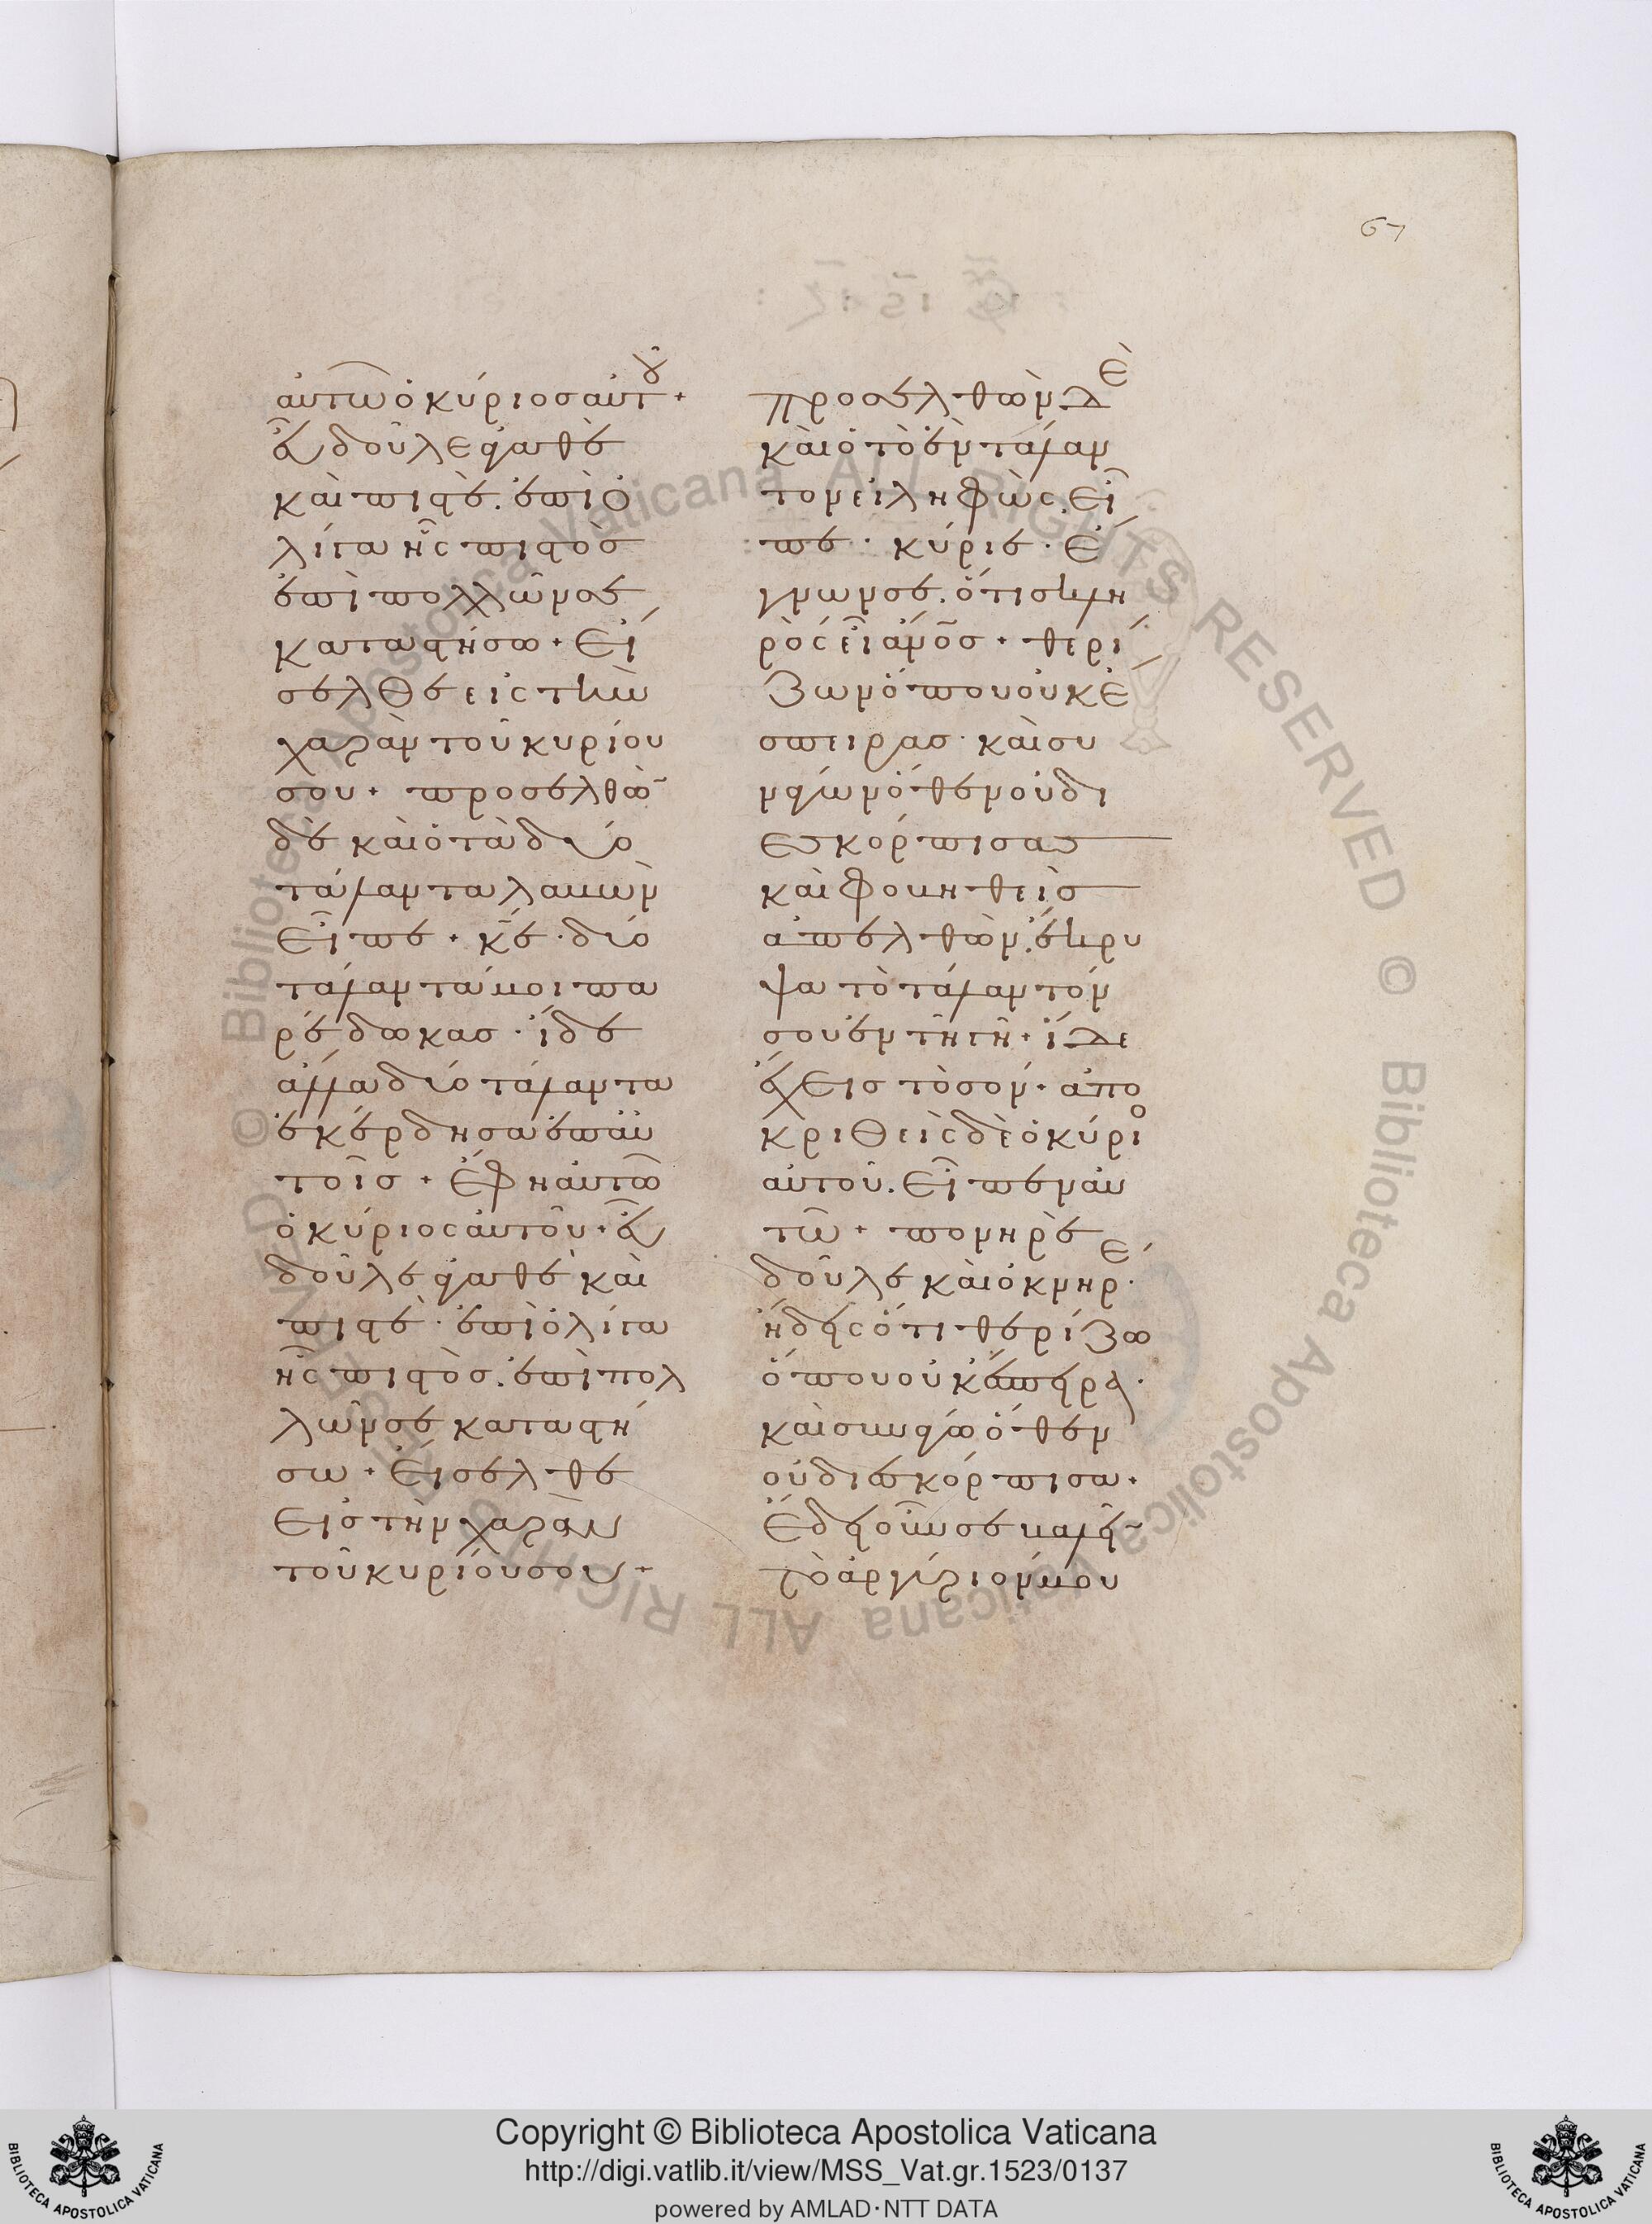 67
αυτῶ ὁ κύριος αὐτοῦ +
εὖ δοῦλε ἀγαθὲ
καὶ πιστὲ. ἐπὶ ὀ
λίγα ἦς πιστὸς
ἐπὶ πολλῶν σε
καταστήσω + εἴ
σελθε εἰς τὴν
χαρὰν τοῦ κυρίου
σου + προσελθὼ̅
δὲ καὶ ὁ τὰ δύο
τάλαντα λαβὼν
εἶπε + κ̅ε̅ · δύο
τάλαντά μοι πα
ρέδωκας · ἴδε
ἄλλα δύο τάλαντα
ἐκέρδησα ἐπ αὐ
τοῖς + ἔφη αὐτῶ
ὁ κύριος αὐτοῦ + εὖ
δοῦλε ἀγαθὲ καὶ
πιστὲ · ἐπὶ ὀλίγα
ἦς πιστὸς. ἐπὶ πολ
λῶν σε καταστή
σω + εἴσελθε
εἰς τὴν χαρὰν
τοῦ κυρίου σου +
προσελθὼν δὲ
καὶ ὁ τὸ ἐν τάλαν
τον εἰληφὼς. εἶ
πε · κύριε · ἔ
γνων σε. ὅτι σκλη
ρὸς εἶ ἄνος + θερί
ζων ὅπου οὐκ ἔ
σπειρας · καὶ συ
νάγων ὅθεν οὐ δι
εσκόρπισας
καὶ φοβηθεὶς
ἀπελθὼν. ἔκρυ
ψα τὸ τάλαντόν
σου ἐν τῆ γῆ + ἴδε
ἔχεις τὸ σόν + ἀπο
κριθεὶς δὲ ὁ κύριο
αὐτοῦ. εἶπεν αὐ
τῶ + πονηρὲ
δοῦλε καὶ ὀκνηρέ ·
ἤδεις ὅτι θερίζω
ὅπου οὐκ ἔσπειρα ·
καὶ συνάγω ὅθεν
οὐ διεσκόρπισα +
ἔδει οὖν σε βαλεῖ̅
τὸ ἀργύριόν μου
Copyright © Biblioteca Apostolica Vaticana
http://digi.vatlib.it/view/MSS_Vat.gr.1523/0137
powered by AMLAD·NTT DATA